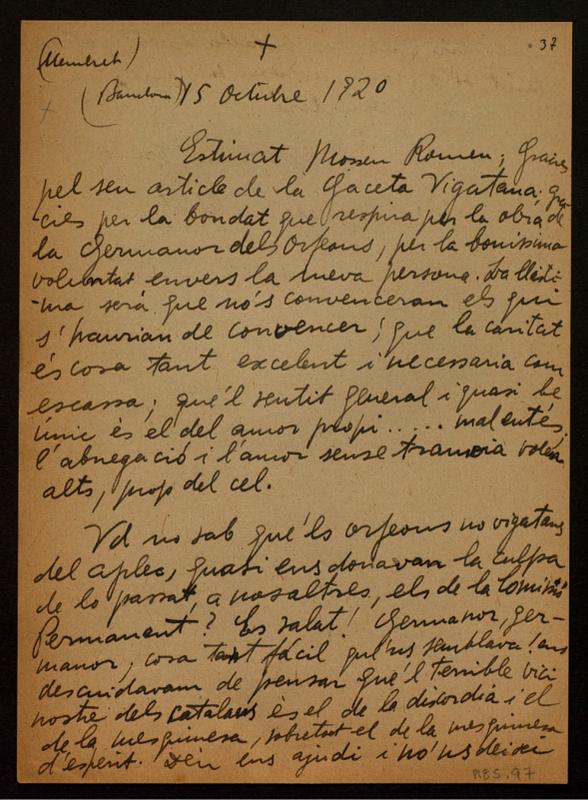 37
(Membret)
+
(Barcelona) 15 Octubre 1920
Estimat Mossen Romeu; Gracies
pel seu article de la Gaceta Vigatana; gra-
cies per la bondat que respira per la obra de
la Germanor dels Orfeons, per la bonissima
voluntat envers la meva persona. La llasti-
ma será que no's convenceran els qui
s'haurian de convencer; que la caritat
és cosa tant excelent i necessaria com
escassa; que'l sentit general i quasi be
únic és el del amor propi ..... mal entés,
l'abnegació i l'amor sense volen
alts, prop del cel.
Vd no sab que'ls orfeons no vigatans
del aplec, quasi ens donavan la culpa
de lo passat, a nosaltres, els de la Comissió
Permanent? Es salat! Germanor, ger-
manor, cosa tant fácil que'ns semblava! ens
descuidavam de pensar que'l terrible vici
nostre dels catalans és el de la discordia i el
de la mesquinesa, sobretot el de la mesquinesa
d'esperit. Deu ens ajudi i no'ns deixi
RBS. 97